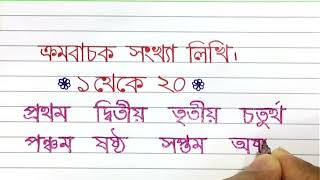 ক্রমবাচক সংখ্যা লিখি।
১ থেকে ২০
প্রথম দ্বিতীয় তৃতীয় চতুর্থ
পঞ্চম ষষ্ঠ সপ্তম